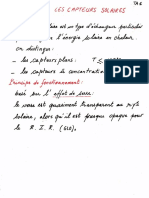 LES CAPTEURS SOLAIRES
est un type d'échangeur particulier
l'énergie solaire en chaleur.
On distingue:
- les capteurs plans: T ≤
- les capteurs à concentration
Principe de fonctionnement:
basé sur l'effet de serre
le verre est quasiment transparent au
solaire, alors qu'il est presque opaque pour
le R.I.R. (GLO).